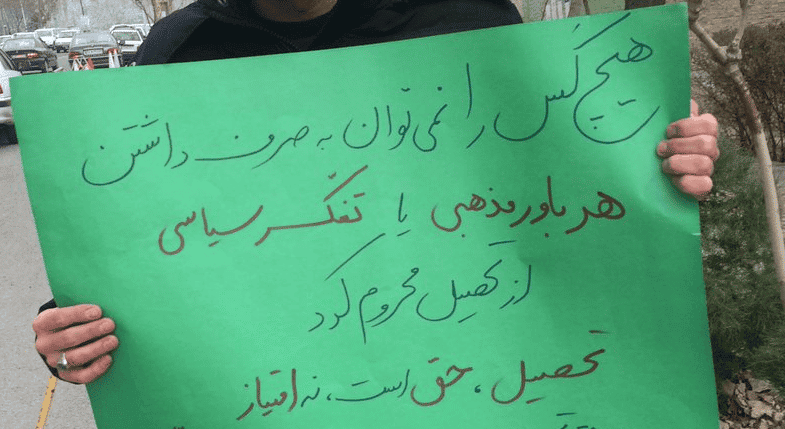 هیچ کَس را نمی توان به صرف داشتن
هر باور مذهبی یا تفکّر سیاسی
از تحصیل محروم کرد
تحصیل، حق است، نه امتیاز